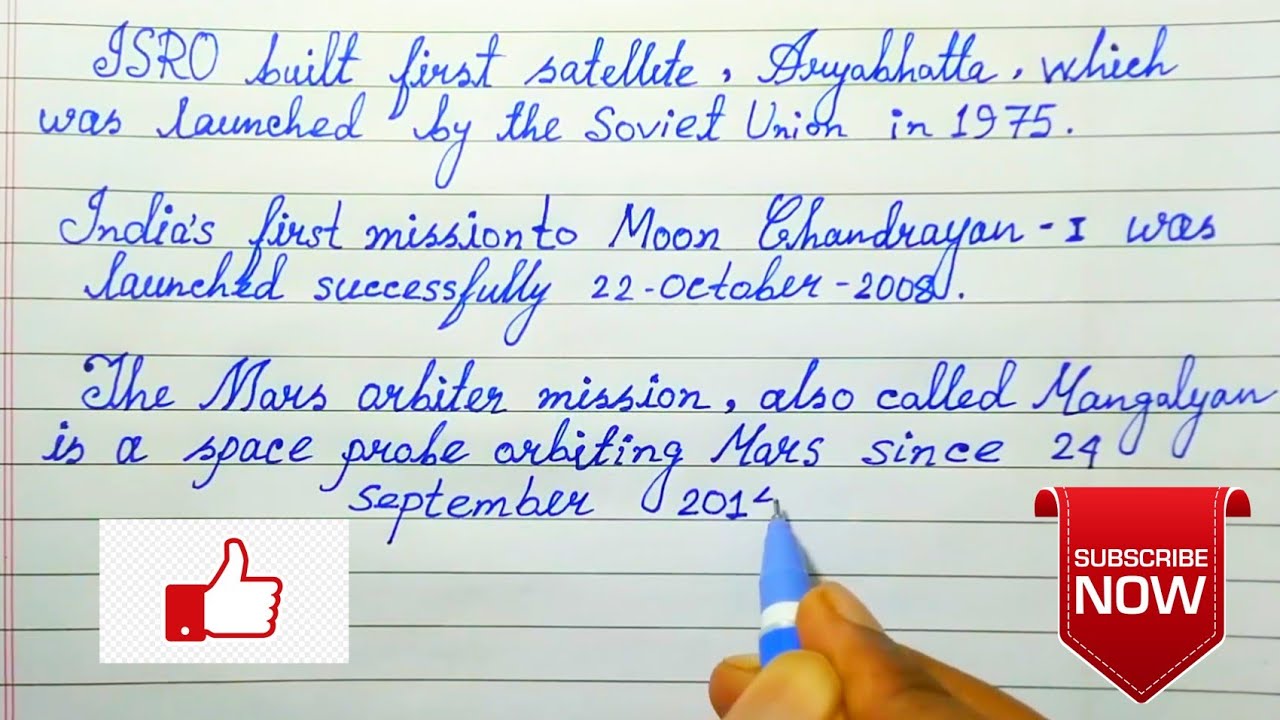 ISRO built first satellite, Aryabhatta, which
was launched by the Soviet Union in 1975.
India's first mission to Moon Chandrayan-I was
launched successfully 22-October-2008.
The Mars orbiter mission, also called Mangalyan
is a space probe orbiting Mars since 24
September 2014
SUBSCRIBE
NOW